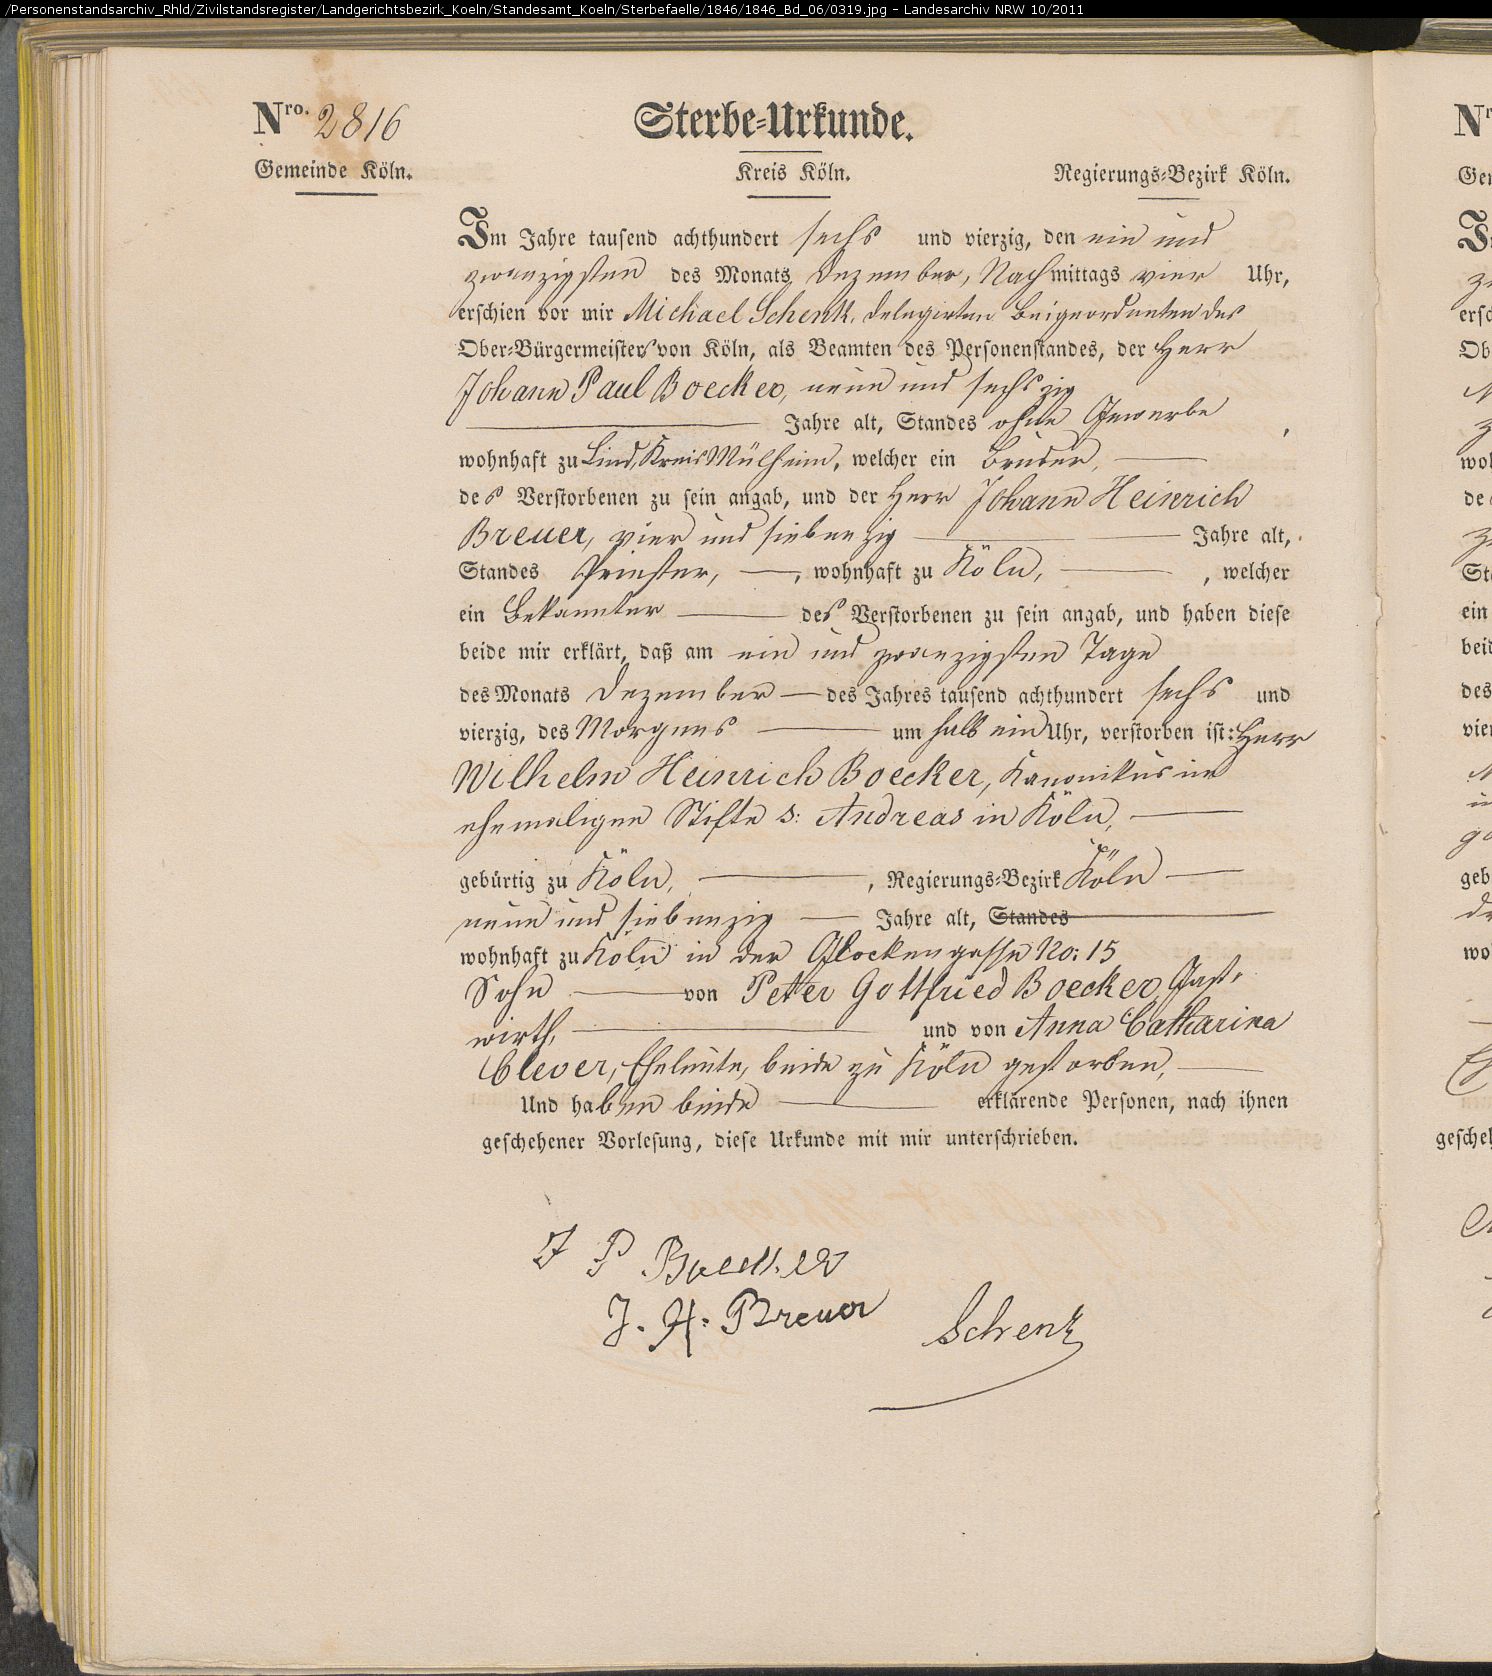 /Personenstandsarchiv_Rhld/Zivilstandsregister/Landgerichtsbezirk_Koeln/Standesamt_Koeln/Sterbefaelle/1846/1846_Bd_06/0319.jpg - Landesarchiv NRW 10/2011
Nro. 2816
Sterbe-Urkunde.
Gemeinde Köln. Kreis Köln. Regierungs-Bezirk Köln.
Im Jahre tausend achthundert sechs und vierzig, den ein und
zwanzigsten des Monats Dezember, Nachmittags vier Uhr,
erschien vor mir Michael Schenk, delegirten Beigeordneten des
Ober-Bürgermeisters von Köln, als Beamten des Personenstandes, der Herr
Johann Paul Boecker, neun und sechszig
Jahre alt, Standes ohne Gewerbe,
wohnhaft zu Lind, Kreis Mülheim, welcher ein Bruder,
des Verstorbenen zu sein angab, und der Herr Johann Heinrich
Breuer, vier und siebenzig Jahre alt,
Standes Priester, wohnhaft zu Köln, welcher
ein Bekannter des Verstorbenen zu sein angab, und haben diese
beide mir erklärt, daß am ein und zwanzigsten Tage
des Monats Dezember des Jahres tausend achthundert sechs und
vierzig, des Morgens um halb ein Uhr, verstorben ist: Herr
Wilhelm Heinrich Boecker, Kanonikus im
ehemaligen Stifte S: Andreas in Köln,
gebürtig zu Köln, Regierungs-Bezirk Köln
neun und siebenzig Jahre alt, Standes
wohnhaft zu Köln in der Glockengasse No: 15
Sohn von Peter Gottfried Boecker, Gast-
wirth, und von Anna Catharina
Clever, Eheleute, beide zu Köln gestorben,
Und haben beide erklärende Personen, nach ihnen
geschehener Vorlesung, diese Urkunde mit mir unterschrieben.
J P Boecker
J. H. Breuer
Schenk